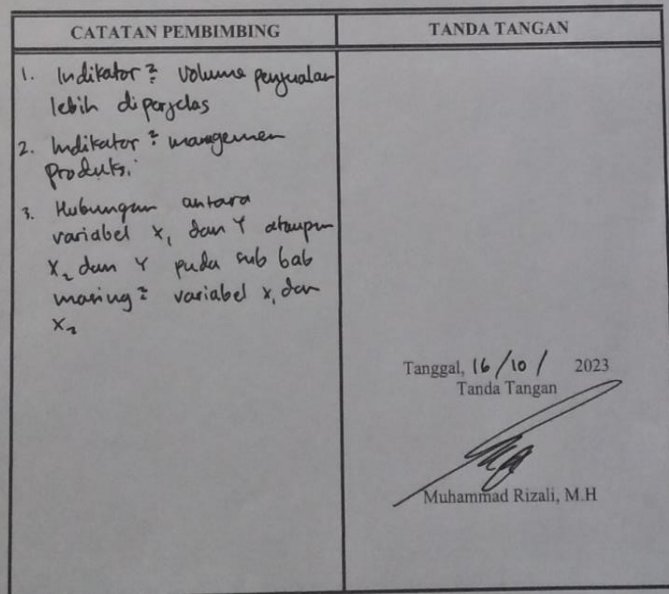 CATATAN PEMBIMBING
TANDA TANGAN
1. Indikator² volume penjualan
lebih diperjelas
2. Indikator² manajemen
produksi.
3. Hubungan antara
variabel X₁ dan Y ataupun
X₂ dan Y pada sub bab
masing² variabel X₁ dan
X₂
Tanggal, 16/10/ 2023
Tanda Tangan
Muhammad Rizali, M.H